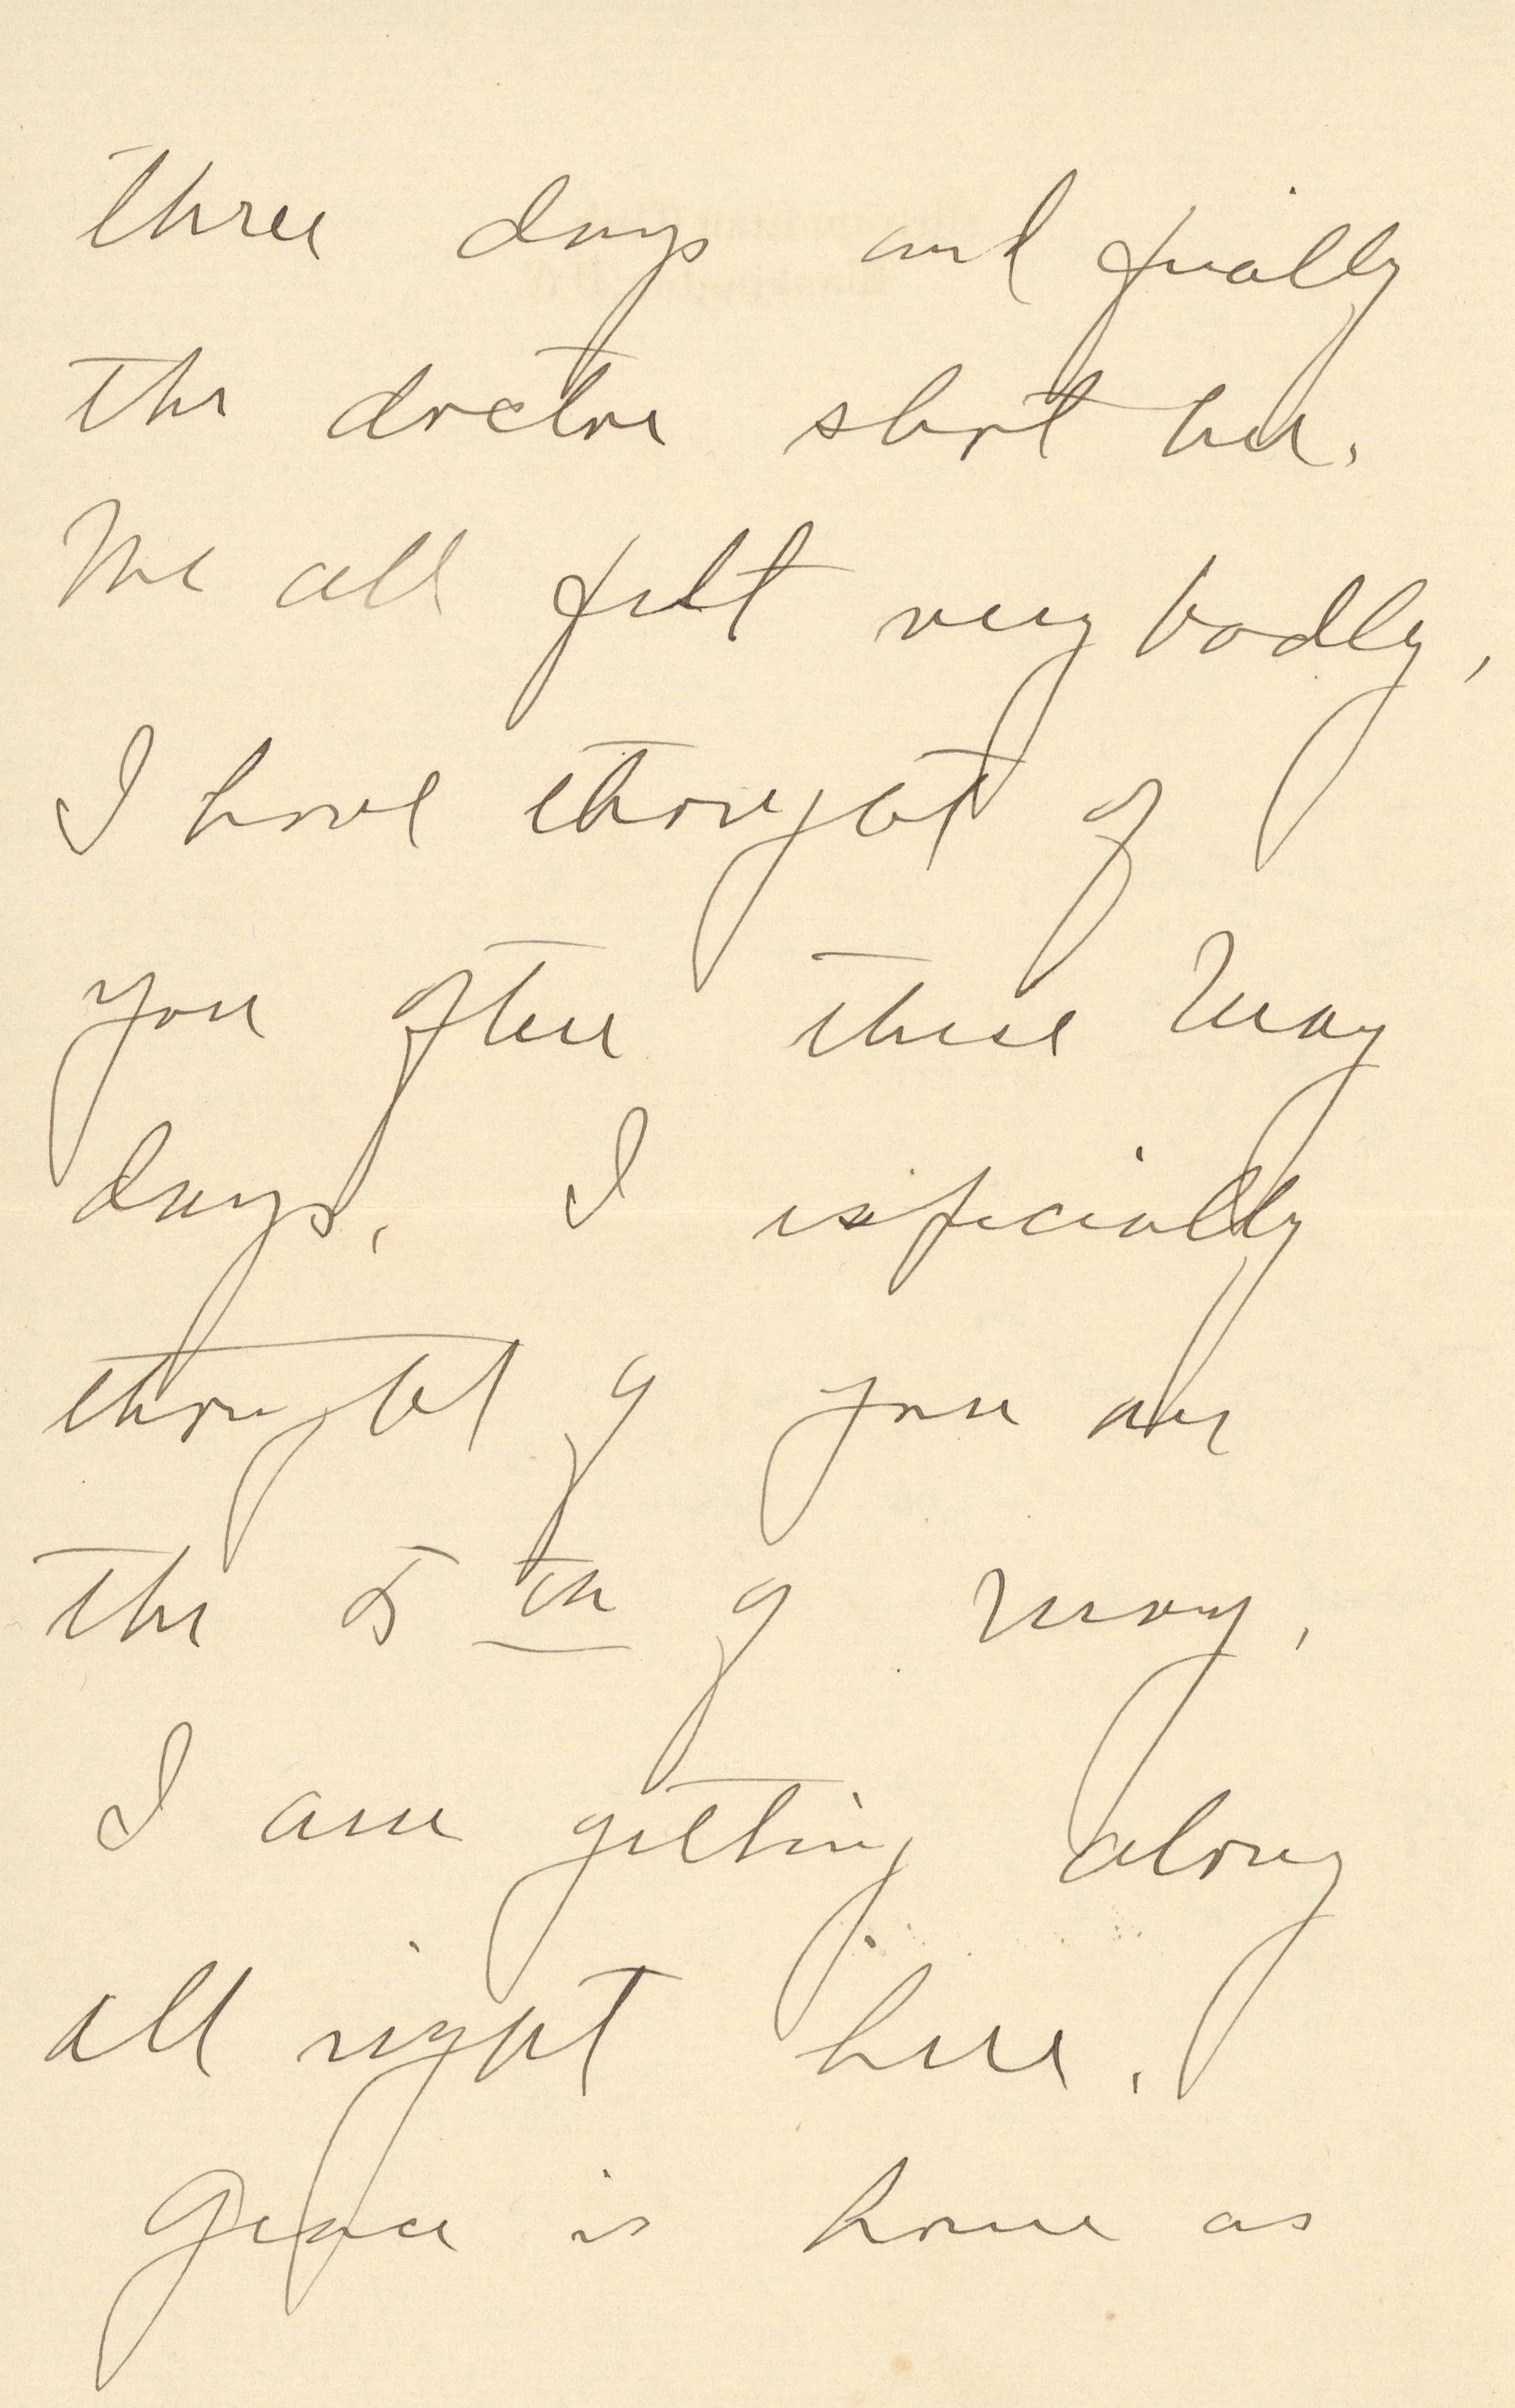 three days and finally
the doctor shot her.
We all felt very badly,
I have thought of
you often these May
days. I especially
thought of you on
the 5th of May.
I am getting along
all right here.
Grace is home as